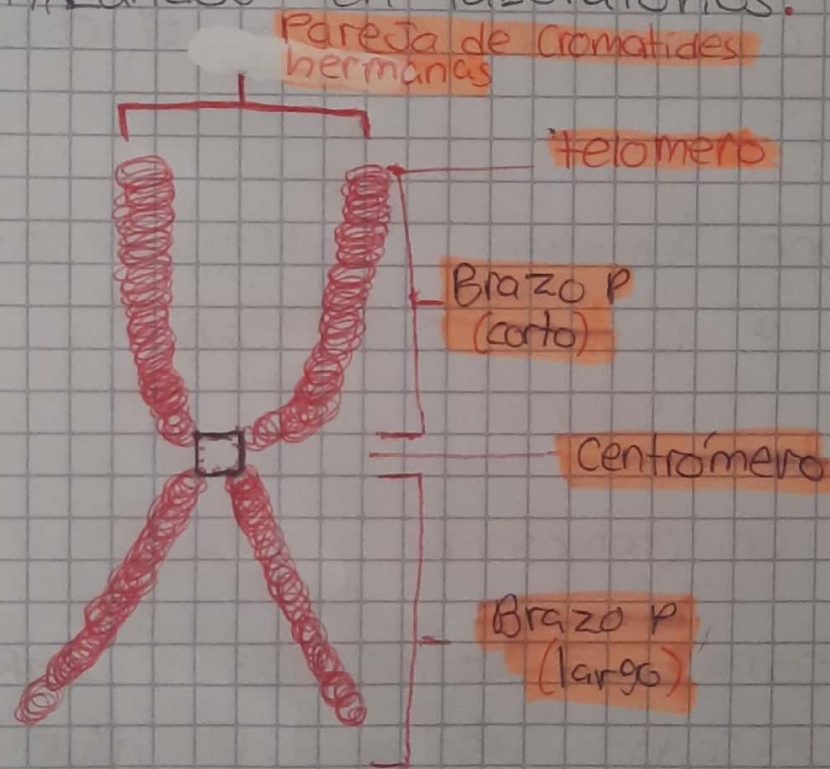 en laboratorios.
Pareja de Cromatides
hermanas
telomero
Brazo P
(corto)
Centrómero
Brazo P
(largo)